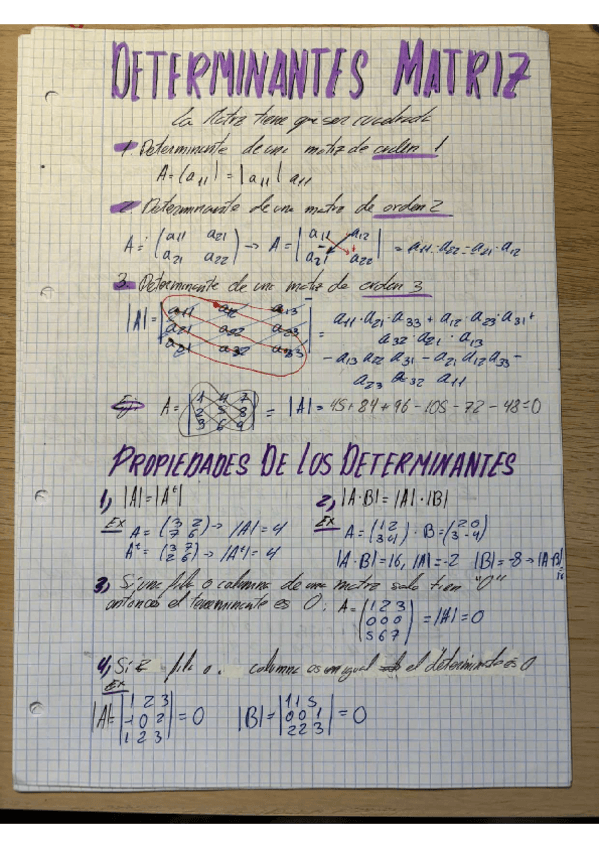 DETERMINANTES MATRIZ
La Matriz tiene que ser cuadrada
1. Determinante de una matriz de orden 1
A=(a11)=|a11| a11
2. Determinante de una matriz de orden 2
A=(a11 a21 / a21 a22) → A=|a11 a12 / a21 a22| = a11·a22-a21·a12
3. Determinante de una matriz de orden 3
|A|=|a11 a12 a13 / a21 a22 a23 / a31 a32 a33| = a11·a21·a33+a12·a23·a31+
a32·a21·a13
-a13 a22 a31-a21 a12 a33-
a23 a32 a11
Ej: A=|1 4 7 / 2 5 8 / 3 6 9| = |A|=45+84+96-105-72-48=0
PROPIEDADES DE LOS DETERMINANTES
1) |A|=|Aᵗ|
Ex A=(3 2 / 7 6) → |A|=4
Aᵗ=(3 7 / 2 6) → |Aᵗ|=4
2) |A·B|=|A|·|B|
Ex A=(1 2 / 3 4) · B=(2 0 / 3 -4)
|A·B|=16, |A|=-2 |B|=-8 → |A·B| 16
3) Si una fila o columna de una matriz solo tien "0"
entonces el determinante es 0: A=(1 2 3 / 0 0 0 / 5 6 7) = |A|=0
4) Si 2 fila o columna igual el determinante es 0
Ex
|A|=|1 2 3 / -1 0 2 / 1 2 3|=0 |B|=|1 1 5 / 0 0 1 / 2 2 3|=0